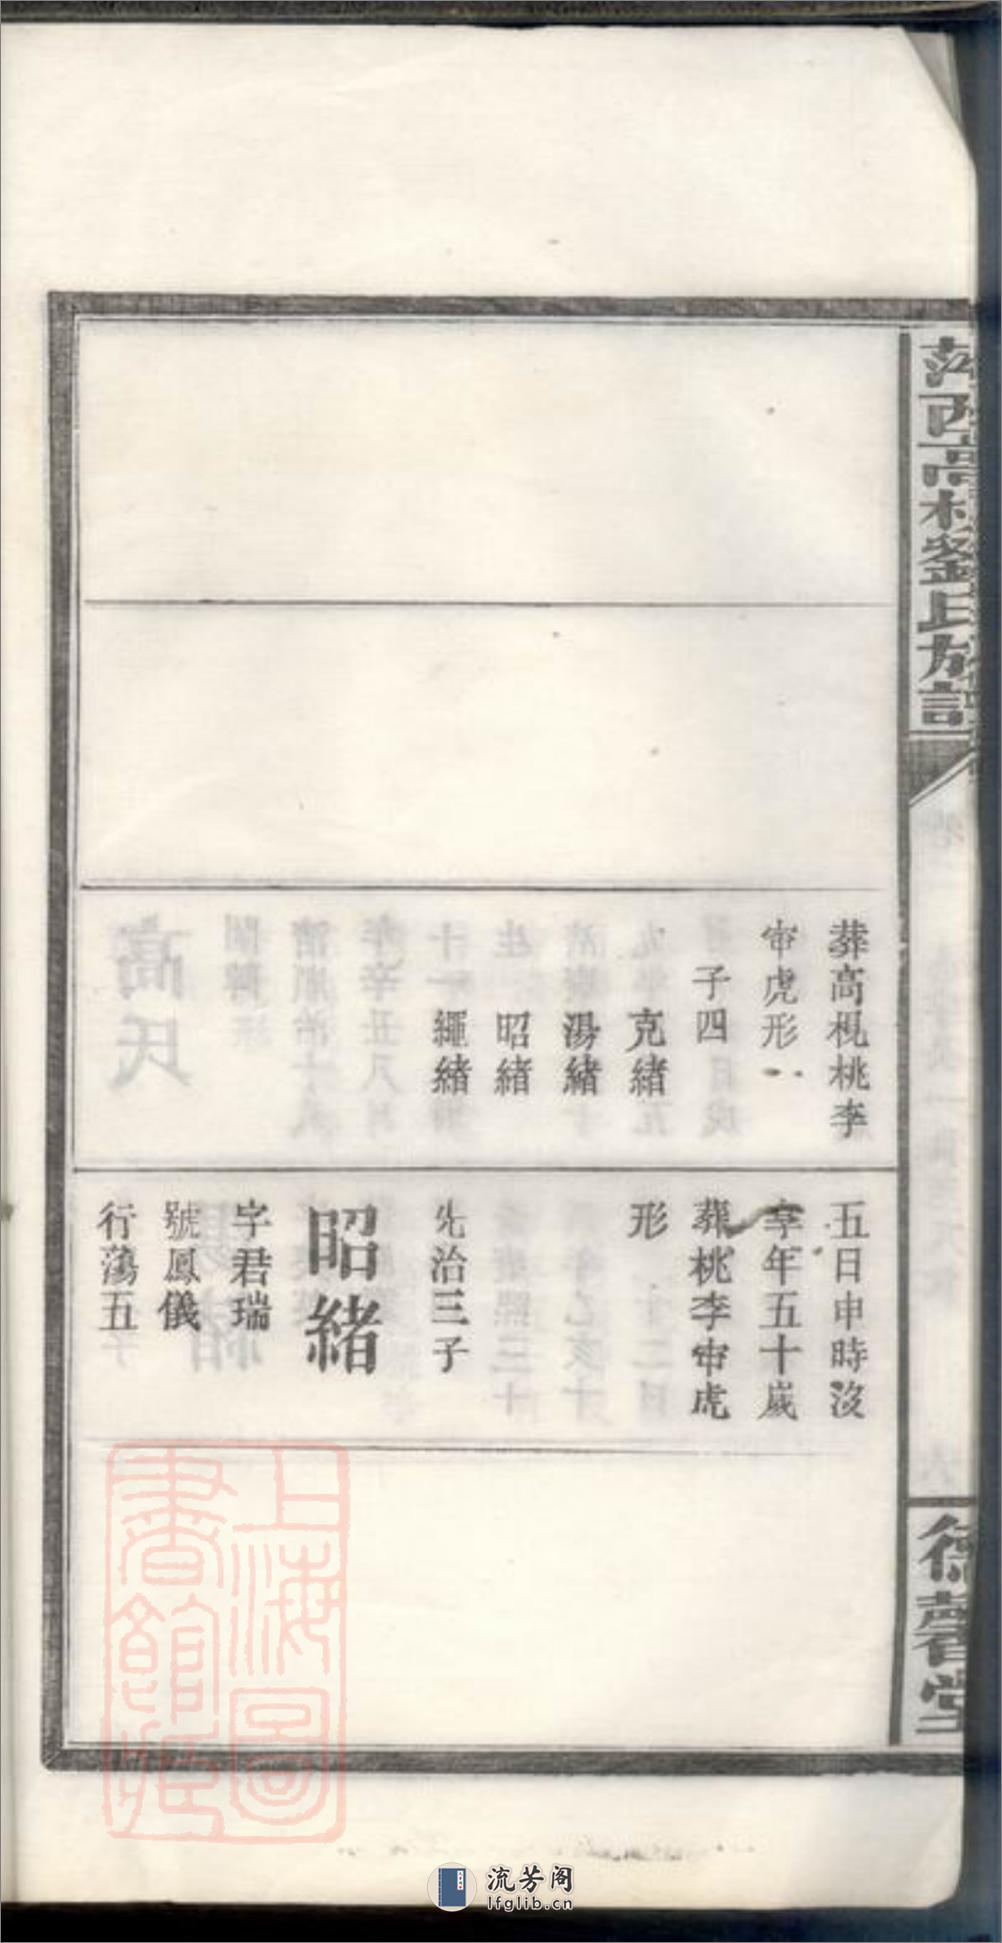 萍西高枧劉氏族譜
德馨堂
葬高枧桃李
窜虎形
子四
克緒
湯緒
昭緒
繩緒
五日申時沒
享年五十歲
葬桃李窜虎
形
先治三子
昭緒
字君瑞
號鳳儀
行蕩五
上海圖
書館藏
流芳阁
lfglib.cn